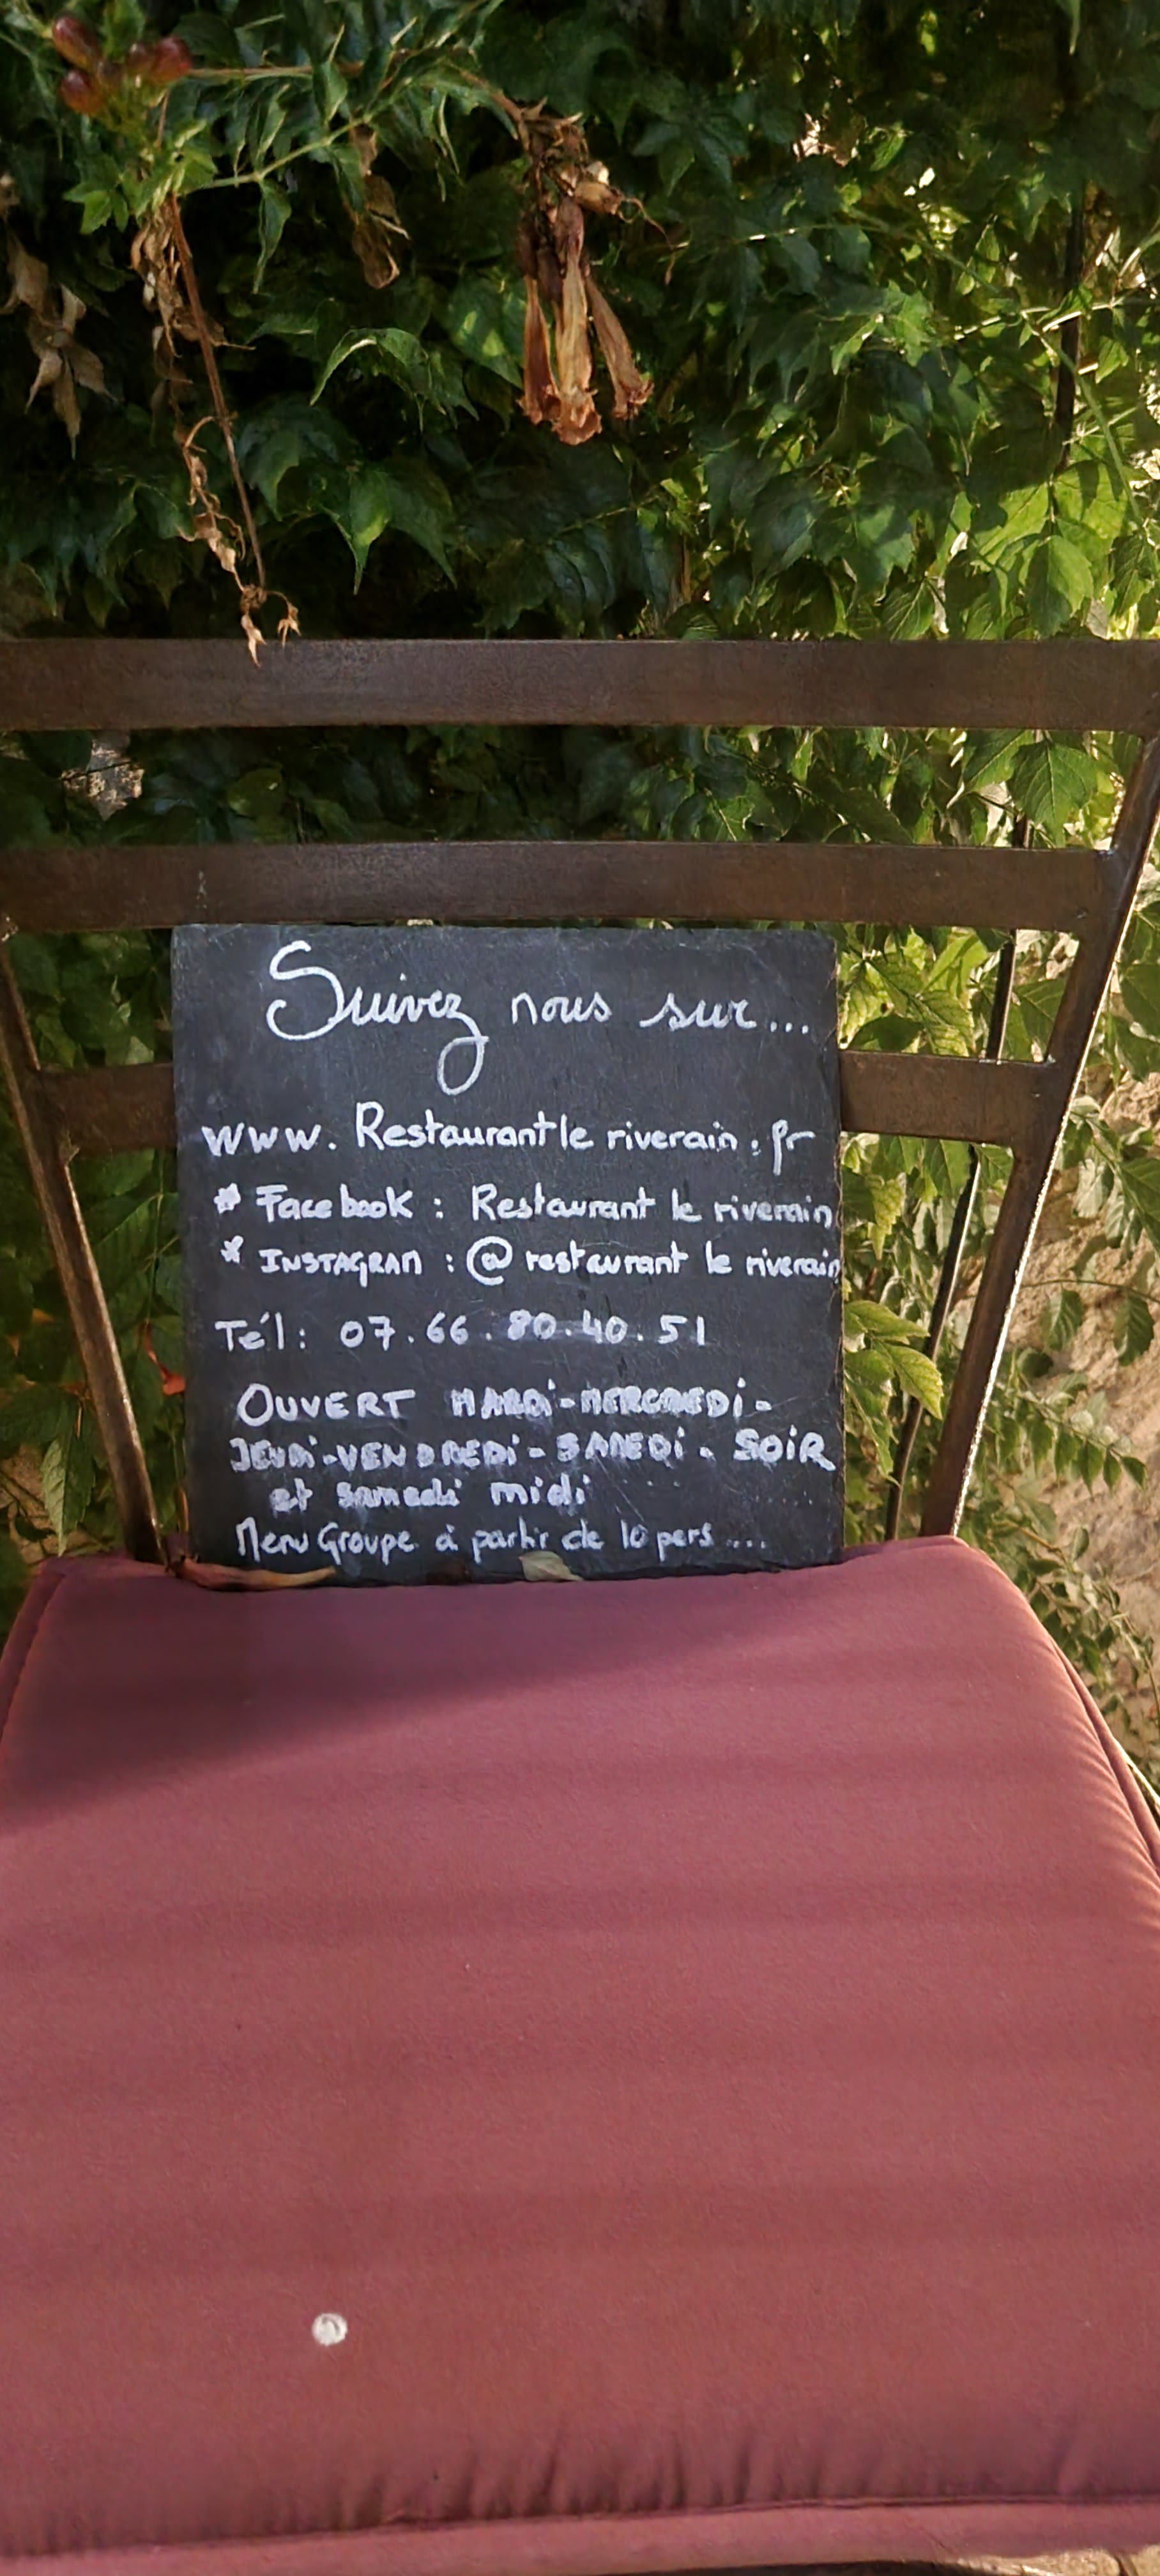 Suivez nous sur...
www. Restaurantle riverain . fr
* Facebook : Restaurant le riverain
* INSTAGRAM : @ restaurant le riverain
Tél : 07.66.80.40.51
OUVERT MARDi-MERCREDi-
JEUDi-VENDREDi-SAMEDi. SOiR
et samedi midi
Menu Groupe à partir de 10 pers ...